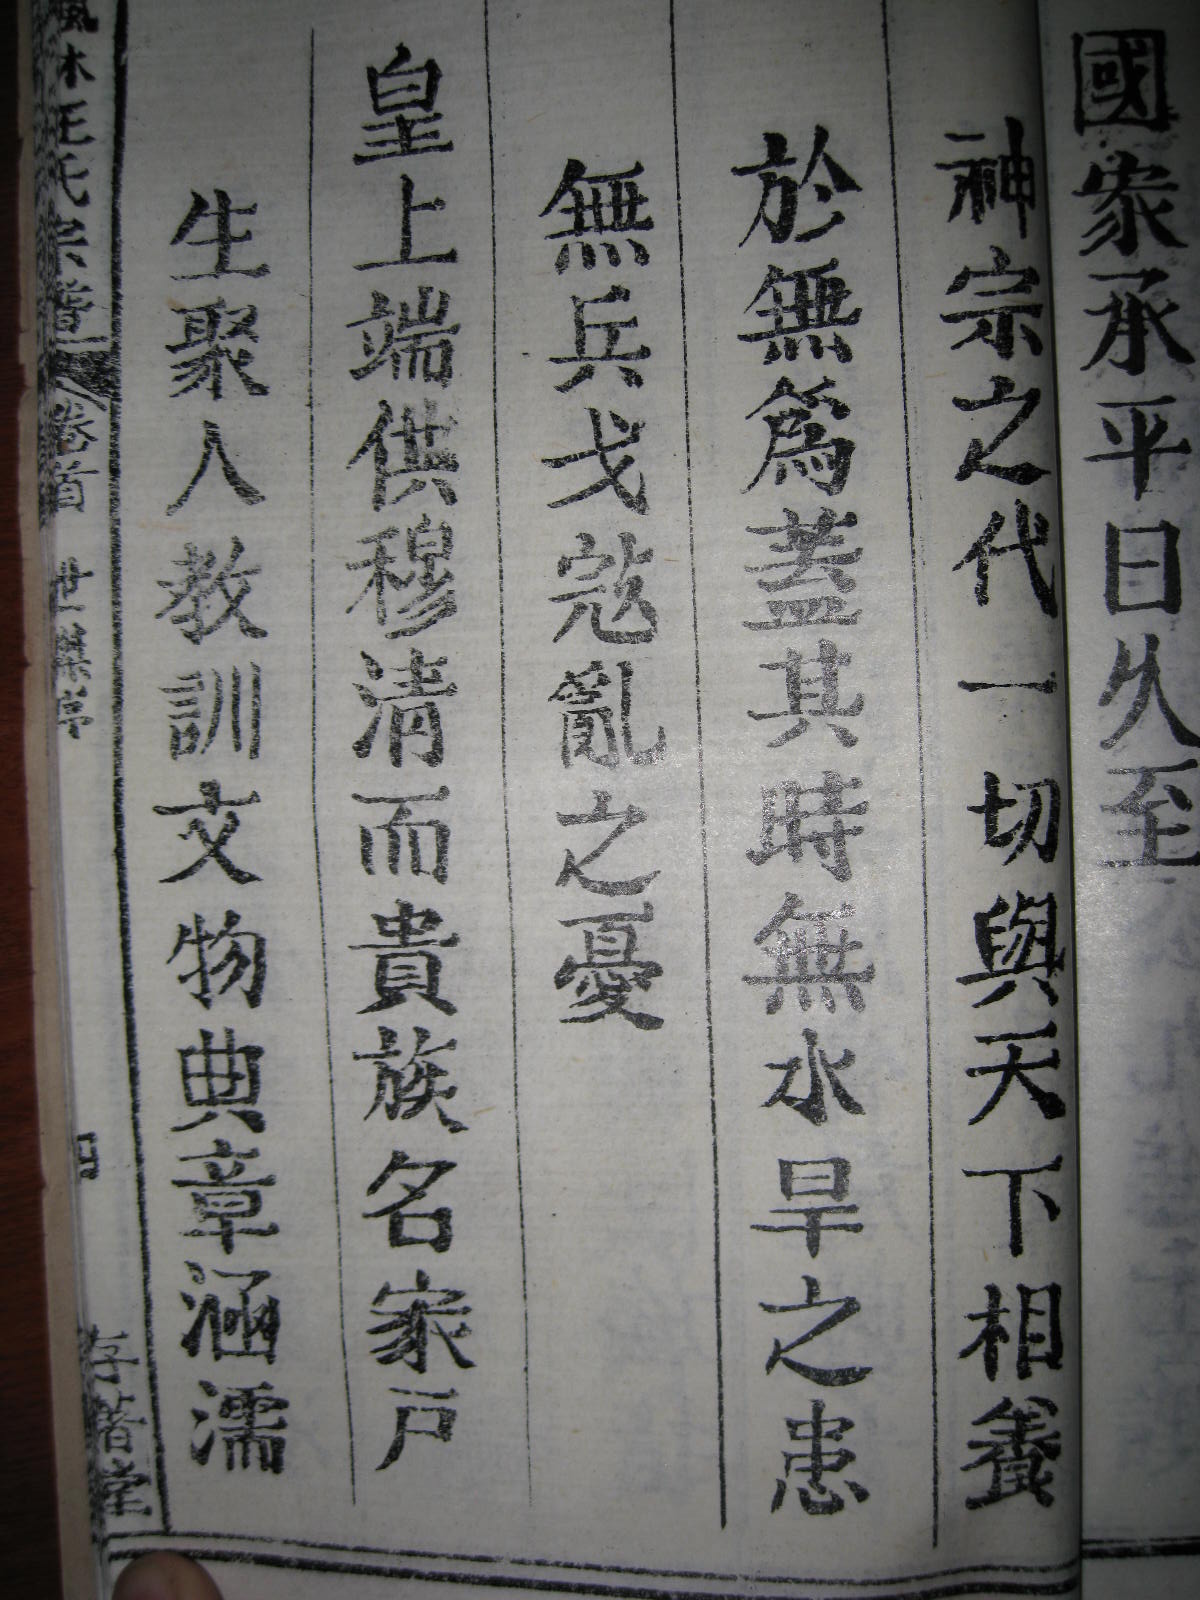 國家承平日久至
神宗之代一切與天下相養
於無爲蓋其時無水旱之患
無兵戈寇亂之憂
皇上端供穆清而貴族名家戶
生聚人教訓文物典章涵濡
木王氏宗譜 卷首 世集序 四 存著堂